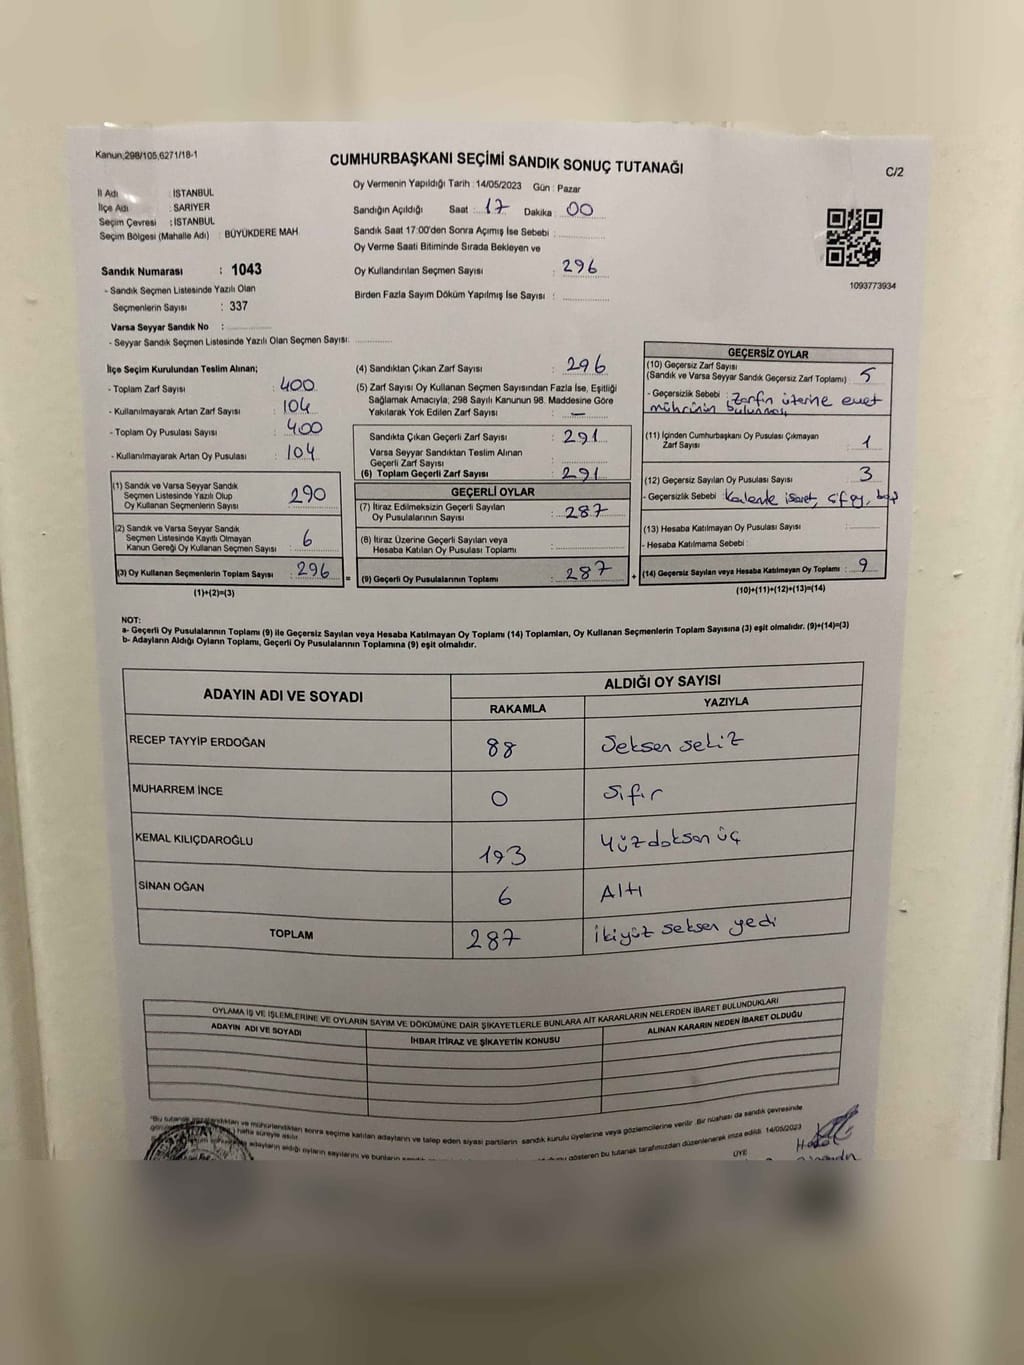 Kanun;298/105,6271/18-1
CUMHURBAŞKANI SEÇİMİ SANDIK SONUÇ TUTANAĞI
C/2
İl Adı : İSTANBUL
İlçe Adı : SARIYER
Seçim Çevresi : İSTANBUL
Seçim Bölgesi (Mahalle Adı) : BÜYÜKDERE MAH
Oy Vermenin Yapıldığı Tarih : 14/05/2023 Gün : Pazar
Sandığın Açıldığı Saat : 17 Dakika : 00
Sandık Saat 17:00'den Sonra Açımış İse Sebebi :
Oy Verme Saati Bitiminde Sırada Bekleyen ve
Oy Kullandırılan Seçmen Sayısı : 296
Birden Fazla Sayım Döküm Yapılmış İse Sayısı :
1093773934
Sandık Numarası : 1043
- Sandık Seçmen Listesinde Yazılı Olan
Seçmenlerin Sayısı : 337
Varsa Seyyar Sandık No :
- Seyyar Sandık Seçmen Listesinde Yazılı Olan Seçmen Sayısı:
İlçe Seçim Kurulundan Teslim Alınan;
- Toplam Zarf Sayısı : 400
- Kullanılmayarak Artan Zarf Sayısı : 104
- Toplam Oy Pusulası Sayısı : 400
- Kullanılmayarak Artan Oy Pusulası : 104
(1) Sandık ve Varsa Seyyar Sandık
Seçmen Listesinde Yazılı Olup
Oy Kullanan Seçmenlerin Sayısı : 290
(2) Sandık ve Varsa Seyyar Sandık
Seçmen Listesinde Kayıtlı Olmayan
Kanun Gereği Oy Kullanan Seçmen Sayısı : 6
(3) Oy Kullanan Seçmenlerin Toplam Sayısı : 296
(1)+(2)=(3)
(4) Sandıktan Çıkan Zarf Sayısı : 296
(5) Zarf Sayısı Oy Kullanan Seçmen Sayısından Fazla İse, Eşitliği
Sağlamak Amacıyla, 298 Sayılı Kanunun 98. Maddesine Göre
Yakılarak Yok Edilen Zarf Sayısı : —
Sandıkta Çıkan Geçerli Zarf Sayısı : 291
Varsa Seyyar Sandıktan Teslim Alınan
Geçerli Zarf Sayısı :
(6) Toplam Geçerli Zarf Sayısı : 291
GEÇERLİ OYLAR
(7) İtiraz Edilmeksizin Geçerli Sayılan
Oy Pusulalarının Sayısı : 287
(8) İtiraz Üzerine Geçerli Sayılan veya
Hesaba Katılan Oy Pusulası Toplamı :
= (9) Geçerli Oy Pusulalarının Toplamı : 287 +
GEÇERSİZ OYLAR
(10) Geçersiz Zarf Sayısı
(Sandık ve Varsa Seyyar Sandık Geçersiz Zarf Toplamı) : 5
- Geçersizlik Sebebi : Zarfın üzerine evet
mührünün bulunması
(11) İçinden Cumhurbaşkanı Oy Pusulası Çıkmayan
Zarf Sayısı : 1
(12) Geçersiz Sayılan Oy Pusulası Sayısı : 3
- Geçersizlik Sebebi : Kalemle işaret,
(13) Hesaba Katılmayan Oy Pusulası Sayısı :
- Hesaba Katılmama Sebebi :
(14) Geçersiz Sayılan veya Hesaba Katılmayan Oy Toplamı : 9
(10)+(11)+(12)+(13)=(14)
NOT:
a- Geçerli Oy Pusulalarının Toplamı (9) ile Geçersiz Sayılan veya Hesaba Katılmayan Oy Toplamı (14) Toplamları, Oy Kullanan Seçmenlerin Toplam Sayısına (3) eşit olmalıdır. (9)+(14)=(3)
b- Adayların Aldığı Oyların Toplamı, Geçerli Oy Pusulalarının Toplamına (9) eşit olmalıdır.
ADAYIN ADI VE SOYADI
ALDIĞI OY SAYISI
RAKAMLA
YAZIYLA
RECEP TAYYİP ERDOĞAN 88 Seksen sekiz
MUHARREM İNCE 0 Sıfır
KEMAL KILIÇDAROĞLU 193 Yüzdoksan üç
SİNAN OĞAN 6 Altı
TOPLAM 287 İkiyüz seksen yedi
OYLAMA İŞ VE İŞLEMLERİNE VE OYLARIN SAYIM VE DÖKÜMÜNE DAİR ŞİKAYETLERLE BUNLARA AİT KARARLARIN NELERDEN İBARET BULUNDUKLARI
ADAYIN ADI VE SOYADI
İHBAR İTİRAZ VE ŞİKAYETİN KONUSU
ALINAN KARARIN NEDEN İBARET OLDUĞU
"Bu tutanak imzalandıktan ve mühürlendikten sonra seçime katılan adayların ve talep eden siyasi partilerin sandık kurulu üyelerine veya gözlemcilerine verilir. Bir nüshası da sandık çevresinde
hafta süreyle asılır.
adayların aldığı oyların sayılarını ve bunların gösteren bu tutanak tarafımızdan düzenlenerek imza edildi. 14/05/2023
ÜYE